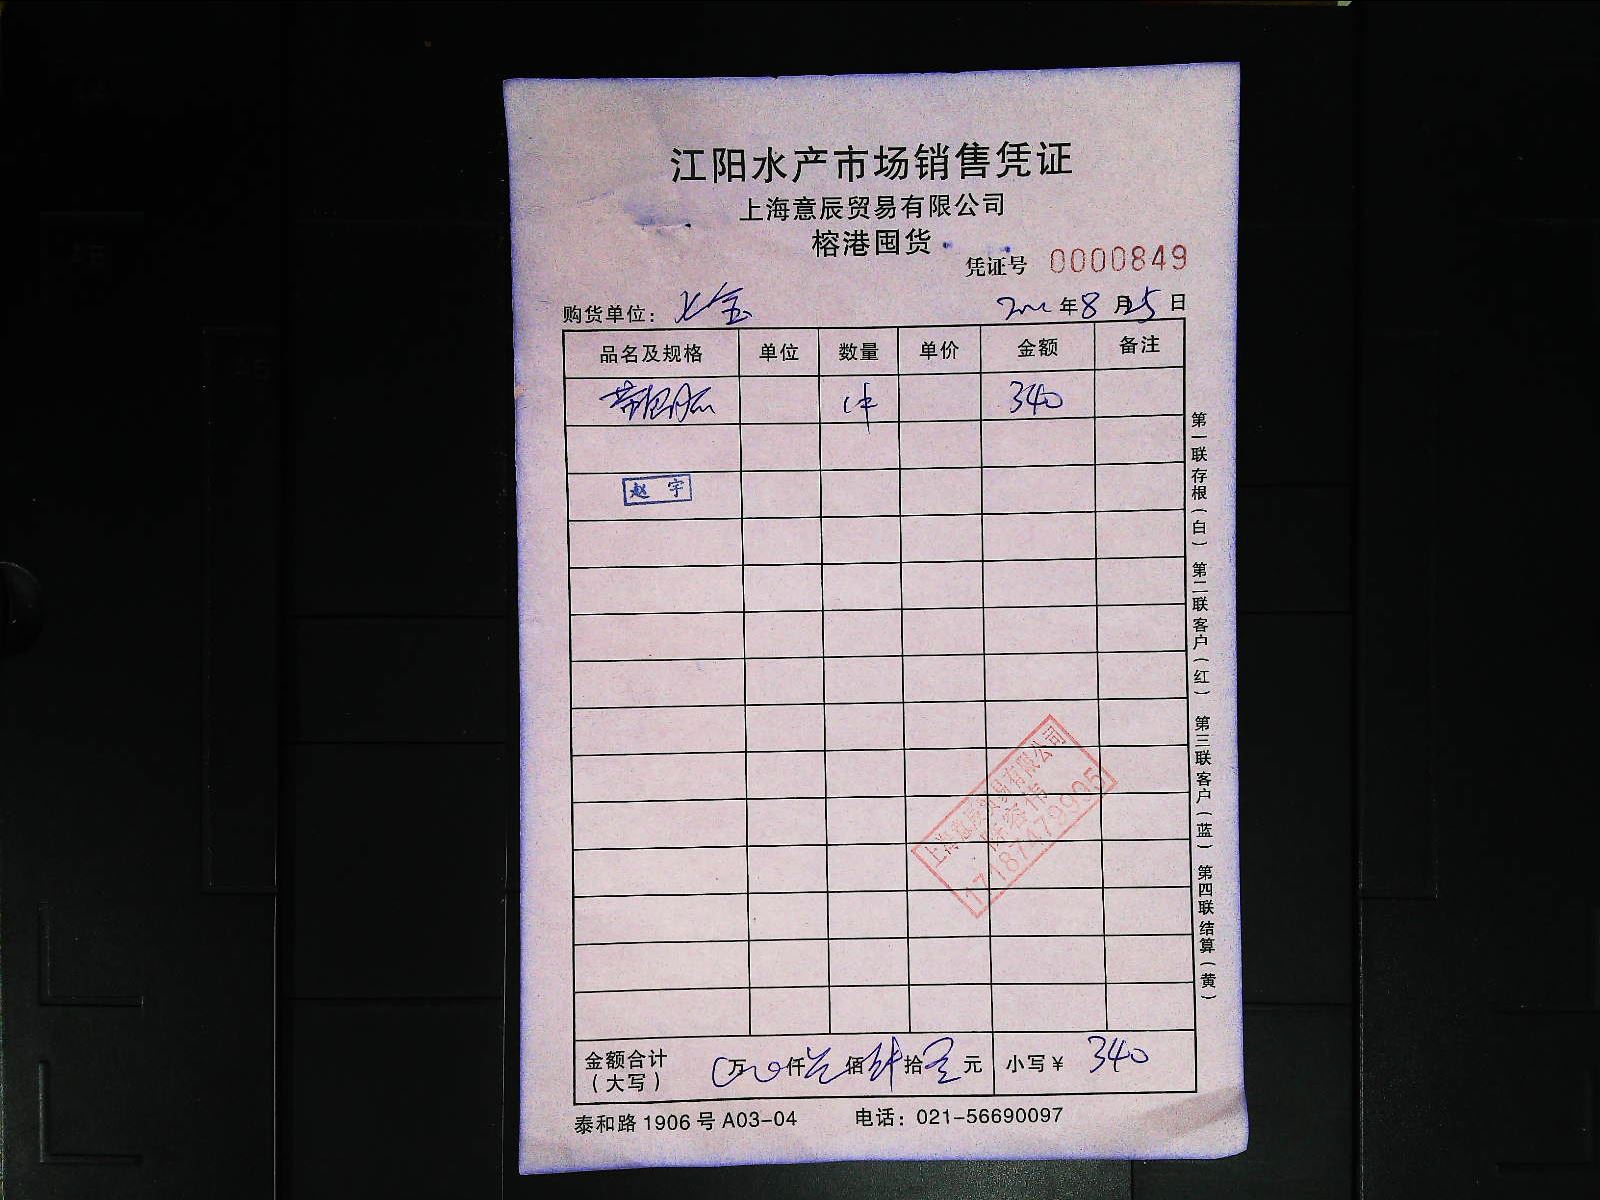 江阳水产市场销售凭证
上海意辰贸易有限公司
榕港囤货
凭证号 0000849
购货单位：七宝 年8月25日
品名及规格 单位 数量 单价 金额 备注
1件 340
赵宇
上海意辰贸易有限公司
17187479995
金额合计（大写） 万 仟 佰 拾 元 小写￥ 340
泰和路1906号A03-04 电话：021-56690097
第一联存根（白） 第二联客户（红） 第三联客户（蓝） 第四联结算（黄）